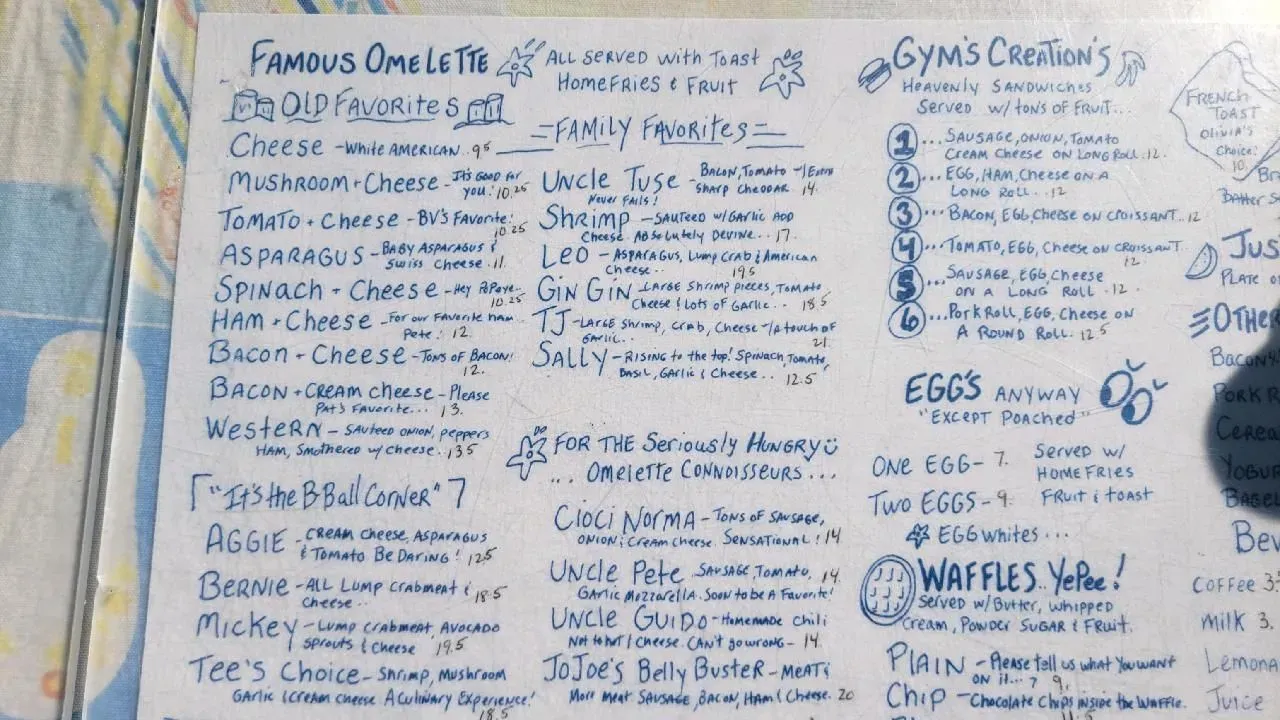 FAMOUS OMELETTE
ALL SERVED WITH TOAST
HOMEFRIES & FRUIT
OLD FAVORITES
CHEESE - WHITE AMERICAN.. 95
MUSHROOM + CHEESE - IT'S GOOD FOR
YOU! 10.25
TOMATO + CHEESE - BV'S FAVORITE!
10.25
ASPARAGUS - BABY ASPARAGUS &
SWISS CHEESE. 11.
SPINACH + CHEESE - HEY POPEYE
10.25
HAM + CHEESE - FOR OUR FAVORITE HAM..
PETE! 12
BACON + CHEESE - TONS OF BACON!
12.
BACON + CREAM CHEESE - PLEASE
PAT'S FAVORITE... 13.
WESTERN - SAUTEED ONION, PEPPERS
HAM, SMOTHERED W/ CHEESE.. 135
"IT'S THE B-BALL CORNER"
AGGIE - CREAM CHEESE, ASPARAGUS
& TOMATO BE DARING! 125
BERNIE - ALL LUMP CRABMEAT &
CHEESE.. 18.5
MICKEY - LUMP CRABMEAT, AVOCADO
SPROUTS & CHEESE 19.5
TEE'S CHOICE - SHRIMP, MUSHROOM
GARLIC & CREAM CHEESE A CULINARY EXPERIENCE!
18.5
FAMILY FAVORITES
UNCLE TUSE - BACON, TOMATO W/EXTRA
NEVER FAILS! SHARP CHEDDAR 14.
SHRIMP - SAUTEED W/GARLIC AOD
CHEESE. ABSOLUTELY DEVINE... 17.
LEO - ASPARAGUS, LUMP CRAB & AMERICAN
CHEESE.. 195
GIN GIN - LARGE SHRIMP PIECES, TOMATO
CHEESE & LOTS OF GARLIC... 18.5
TJ - LARGE SHRIMP, CRAB, CHEESE W/A TOUCH OF
GARLIC.. 21.
SALLY - RISING TO THE TOP! SPINACH, TOMATO,
BASIL, GARLIC & CHEESE.. 12.5
FOR THE SERIOUSLY HUNGRY
... OMELETTE CONNOISSEURS...
CIOCI NORMA - TONS OF SAUSAGE,
ONION & CREAM CHEESE. SENSATIONAL! 14
UNCLE PETE SAUSAGE, TOMATO, 14.
GARLIC MOZZARELLA. SOON TO BE A FAVORITE!
UNCLE GUIDO - HOMEMADE CHILI
NOT TO HOT & CHEESE. CAN'T GO WRONG - 14.
JOJOE'S BELLY BUSTER - MEAT &
MORE MEAT SAUSAGE, BACON, HAM & CHEESE. 20
GYM'S CREATION'S
HEAVENLY SANDWICHES
SERVED W/ TONS OF FRUIT...
1... SAUSAGE, ONION, TOMATO
CREAM CHEESE ON LONG ROLL. 12.
2... EGG, HAM, CHEESE ON A
LONG ROLL.. 12
3... BACON, EGG, CHEESE ON CROISSANT.. 12
4... TOMATO, EGG, CHEESE ON CROISSANT.
12.
5... SAUSAGE, EGG, CHEESE
ON A LONG ROLL. 12.
6... PORK ROLL, EGG, CHEESE ON
A ROUND ROLL. 12.5
EGG'S ANYWAY
"EXCEPT POACHED"
ONE EGG - 7.
TWO EGGS - 9.
SERVED W/
HOMEFRIES
FRUIT & TOAST
EGG WHITES...
WAFFLES.. YEPEE!
SERVED W/BUTTER, WHIPPED
CREAM, POWDER SUGAR & FRUIT.
PLAIN - PLEASE TELL US WHAT YOU WANT
ON IT...? 9.
CHIP - CHOCOLATE CHIPS INSIDE THE WAFFLE.
11.5
FRENCH
TOAST
OLIVIA'S
CHOICE!
10.
BATTER
JUS
PLATE O
OTHER
BACON
PORK R
CEREA
YOGUR
BAGEL
BEV
COFFEE 3.
MILK 3.
LEMONA
JUICE